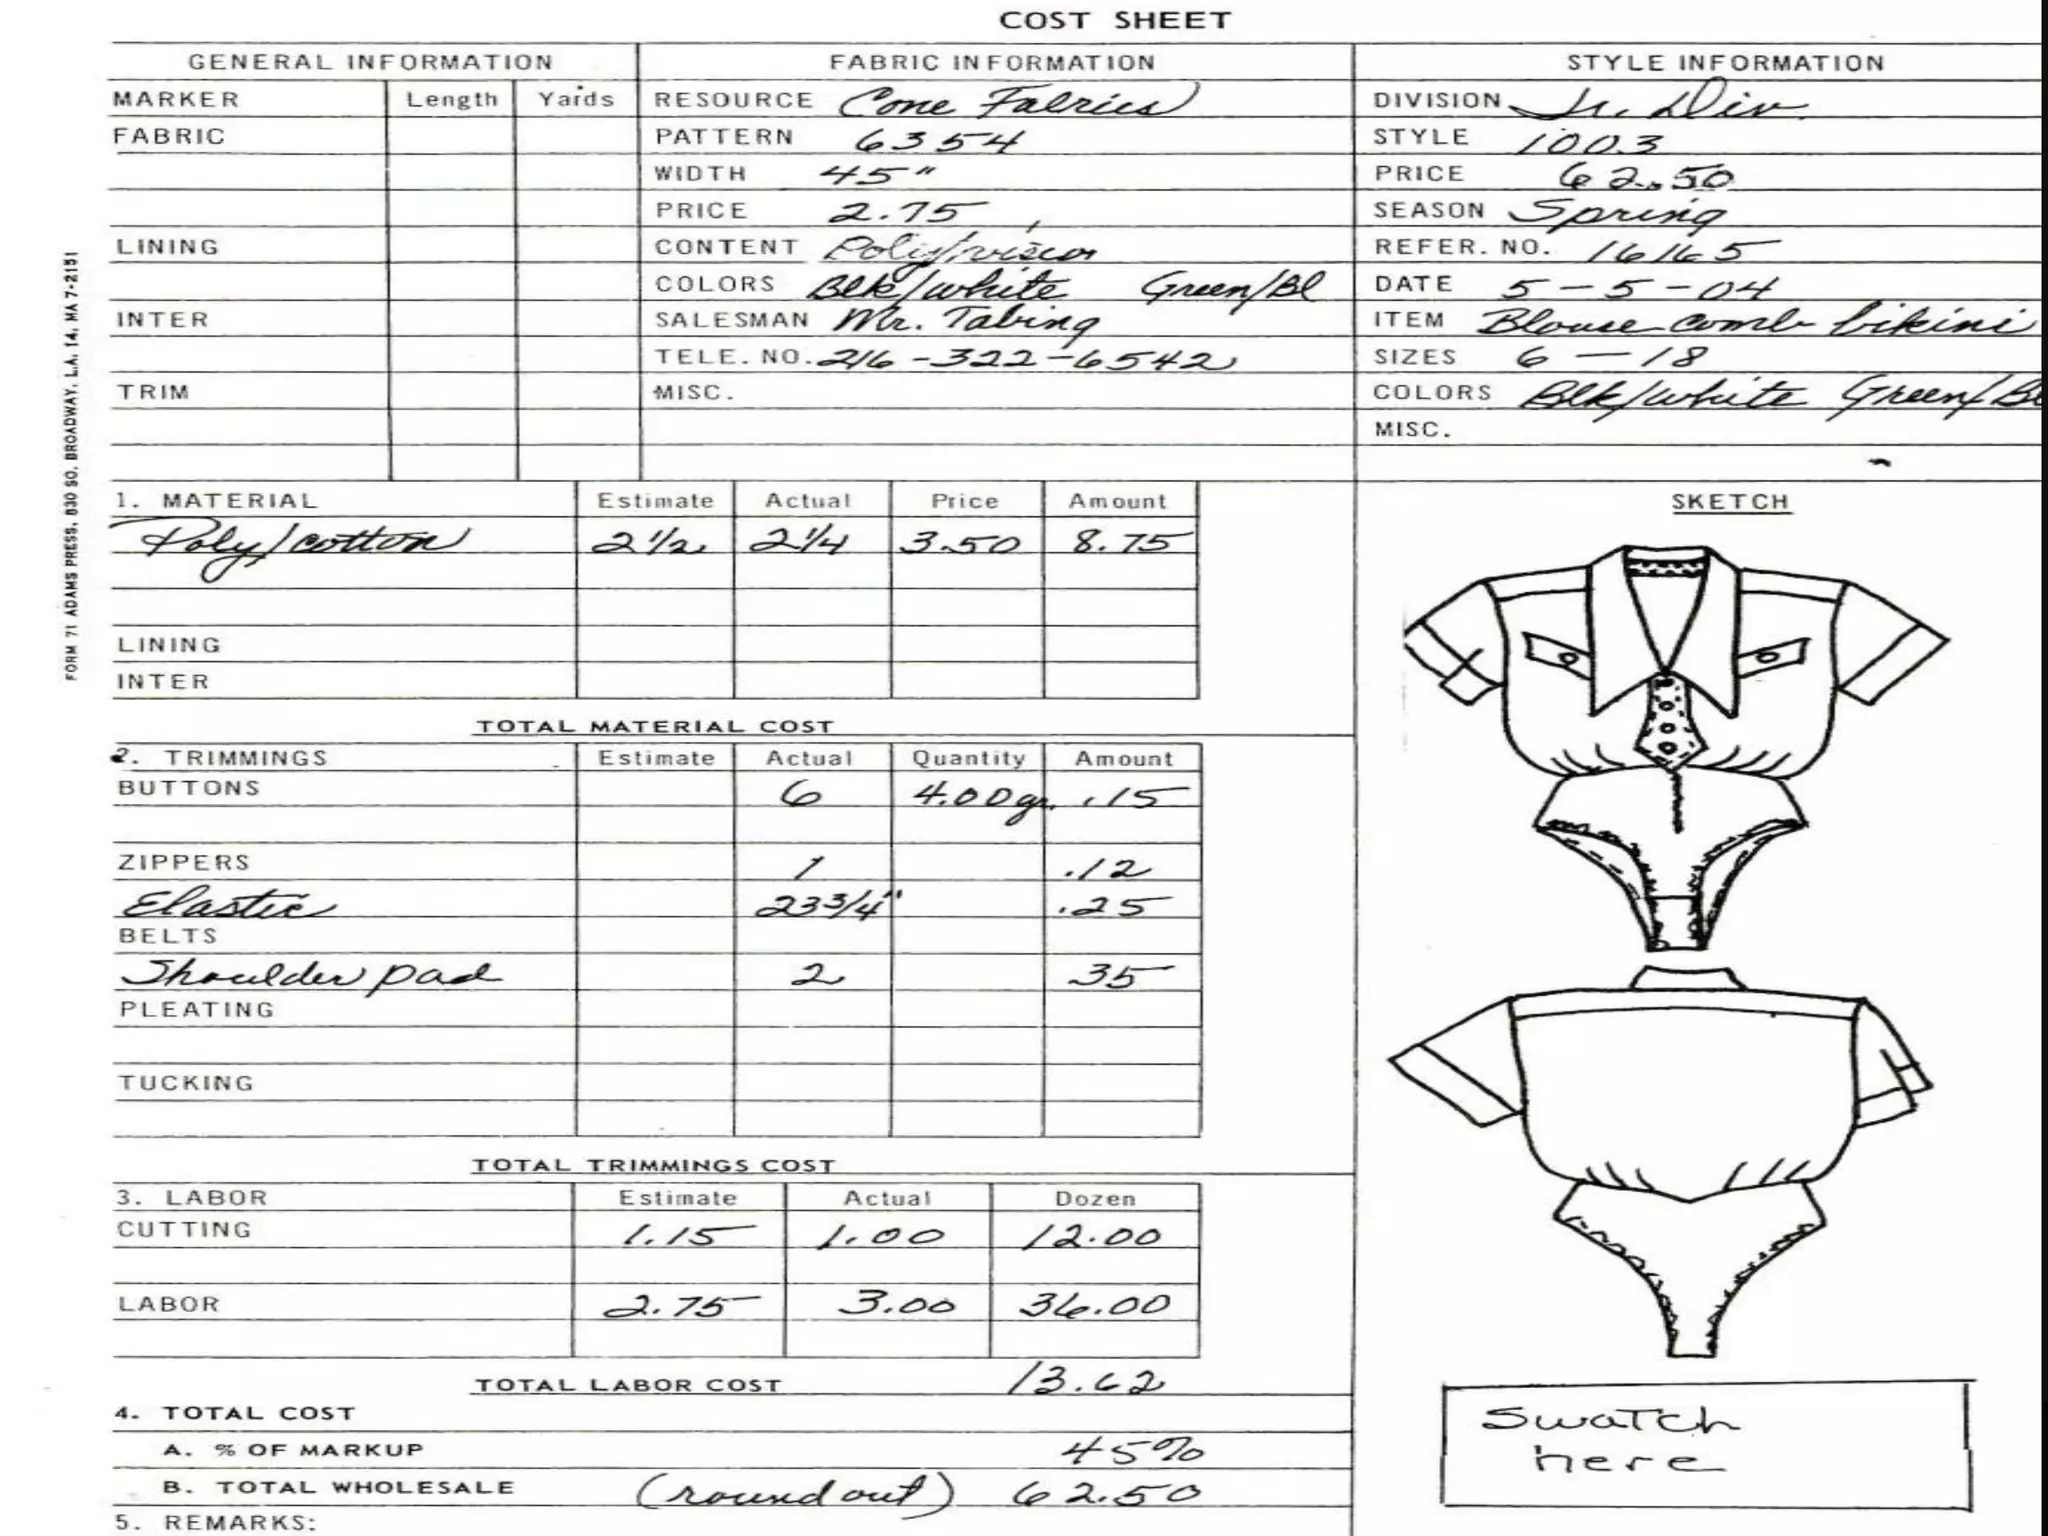 COST SHEET
GENERAL INFORMATION FABRIC INFORMATION STYLE INFORMATION
MARKER Length Yards RESOURCE Cone Fabrics DIVISION Jr. Div.
FABRIC PATTERN 6354 STYLE 1003
WIDTH 45" PRICE 62.50
PRICE 2.75 SEASON Spring
LINING CONTENT Poly/viscon REFER. NO. 16165
COLORS Blk/white Green/Bl DATE 5-5-04
INTER SALESMAN Mr. Tabing ITEM Blouse comb bikini
TELE. NO. 216-322-6542 SIZES 6 — 18
TRIM MISC. COLORS Blk/white Green/Bl
MISC.
1. MATERIAL Estimate Actual Price Amount SKETCH
Poly/cotton 2 1/2 2 1/4 3.50 8.75
LINING
INTER
TOTAL MATERIAL COST
2. TRIMMINGS Estimate Actual Quantity Amount
BUTTONS 6 4.00gr. .15
ZIPPERS 1 .12
Elastic 23 3/4" .25
BELTS
Shoulder pad 2 .35
PLEATING
TUCKING
TOTAL TRIMMINGS COST
3. LABOR Estimate Actual Dozen
CUTTING 1.15 1.00 12.00
LABOR 2.75 3.00 36.00
TOTAL LABOR COST 13.62
4. TOTAL COST
A. % OF MARKUP 45%
B. TOTAL WHOLESALE (round out) 62.50
5. REMARKS:
Swatch
here
FORM 71 ADAMS PRESS, 830 SO. BROADWAY, L.A. 14, MA 7-2151